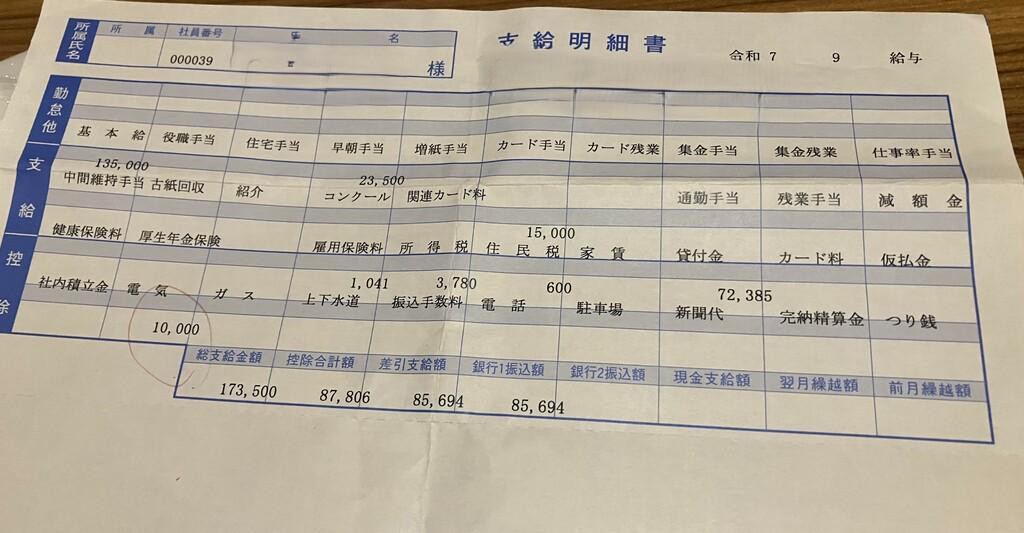 支給明細書
令和 7 9 給与
所属氏名 所属 社員番号 名
000039 様
勤怠他
支給
基本給 役職手当 住宅手当 早朝手当 増紙手当 カード手当 カード残業 集金手当 集金残業 仕事率手当
135,000 23,500
中間維持手当 古紙回収 紹介 コンクール 関連カード料 通勤手当 残業手当 減額金
15,000
控除
健康保険料 厚生年金保険 雇用保険料 所得税 住民税 家賃 貸付金 カード料 仮払金
1,041 3,780 600 72,385
社内積立金 電気 ガス 上下水道 振込手数料 電話 駐車場 新聞代 完納精算金 つり銭
10,000
総支給金額 控除合計額 差引支給額 銀行1振込額 銀行2振込額 現金支給額 翌月繰越額 前月繰越額
173,500 87,806 85,694 85,694